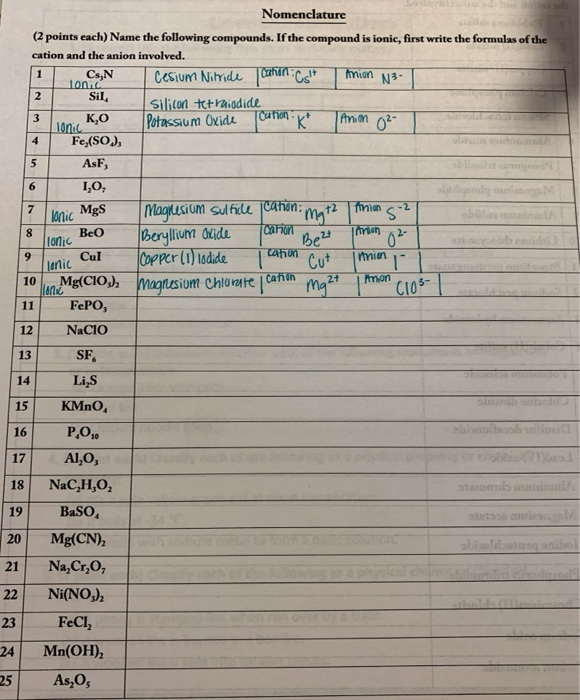 Nomenclature
(2 points each) Name the following compounds. If the compound is ionic, first write the formulas of the
cation and the anion involved.
1 Cs₃N Ionic Cesium Nitride cation: Cs¹⁺ Anion N³⁻
2 SiI₄ silicon tetraiodide
3 K₂O Ionic Potassium Oxide cation: K⁺ Anion O²⁻
4 Fe₂(SO₄)₃
5 AsF₃
6 I₂O₇
7 Ionic MgS Magnesium sulfide cation: Mg⁺² Anion S⁻²
8 Ionic BeO Beryllium Oxide cation Be²⁺ Anion O²⁻
9 Ionic CuI Copper (I) Iodide cation Cu⁺ Anion I⁻
10 Ionic Mg(ClO₃)₂ Magnesium Chlorate cation Mg²⁺ Anion ClO³⁻
11 FePO₃
12 NaClO
13 SF₆
14 Li₂S
15 KMnO₄
16 P₄O₁₀
17 Al₂O₃
18 NaC₂H₃O₂
19 BaSO₄
20 Mg(CN)₂
21 Na₂Cr₂O₇
22 Ni(NO₃)₂
23 FeCl₂
24 Mn(OH)₂
25 As₂O₅